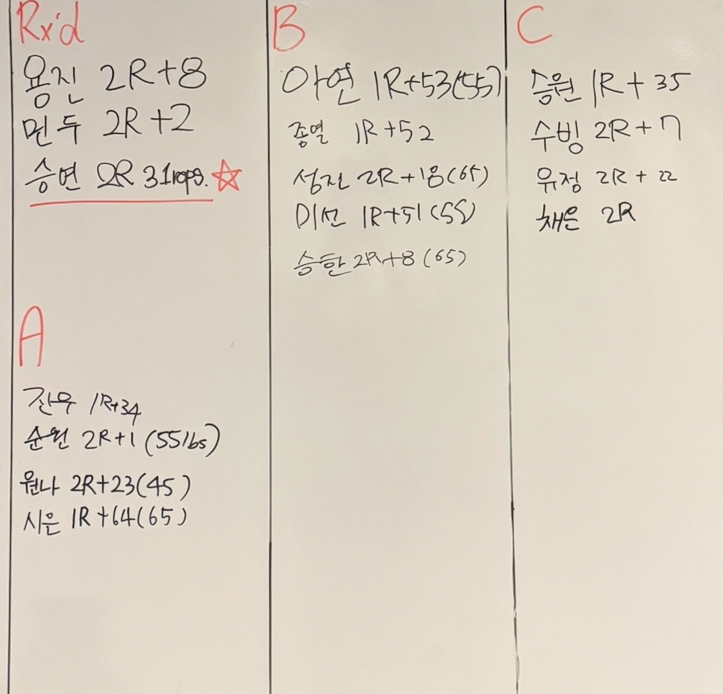 Rx'd
용진 2R+8
민두 2R+2
승연 2R 31reps. ☆
A
진우 1R+34
순원 2R+1 (55lbs)
원나 2R+23(45)
시은 1R+64(65)
B
아연 1R+53(55)
종열 1R+52
성진 2R+18(65)
미선 1R+51(55)
승환 2R+8(65)
C
승원 1R+35
수빙 2R+7
유정 2R+22
채은 2R